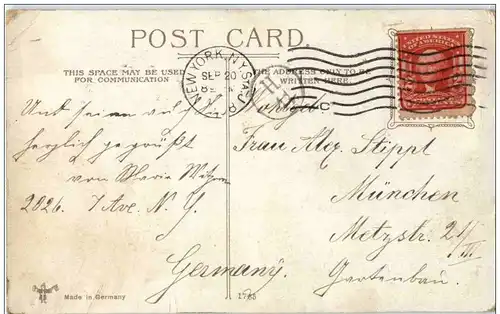 POST CARD
THIS SPACE MAY BE USED
FOR COMMUNICATION
THE ADDRESS ONLY TO BE
WRITTEN HERE
NEW YORK, N.Y. STA. J
SEP 20
UNITED STATES
OF AMERICA
Und seien
herzlich gegrüßt
von Marie
2026. 7 Ave. N. Y.
Frau Alex. Stippl
München
Metzstr. 24/III
Germany. Gartenbau.
Made in Germany
1765